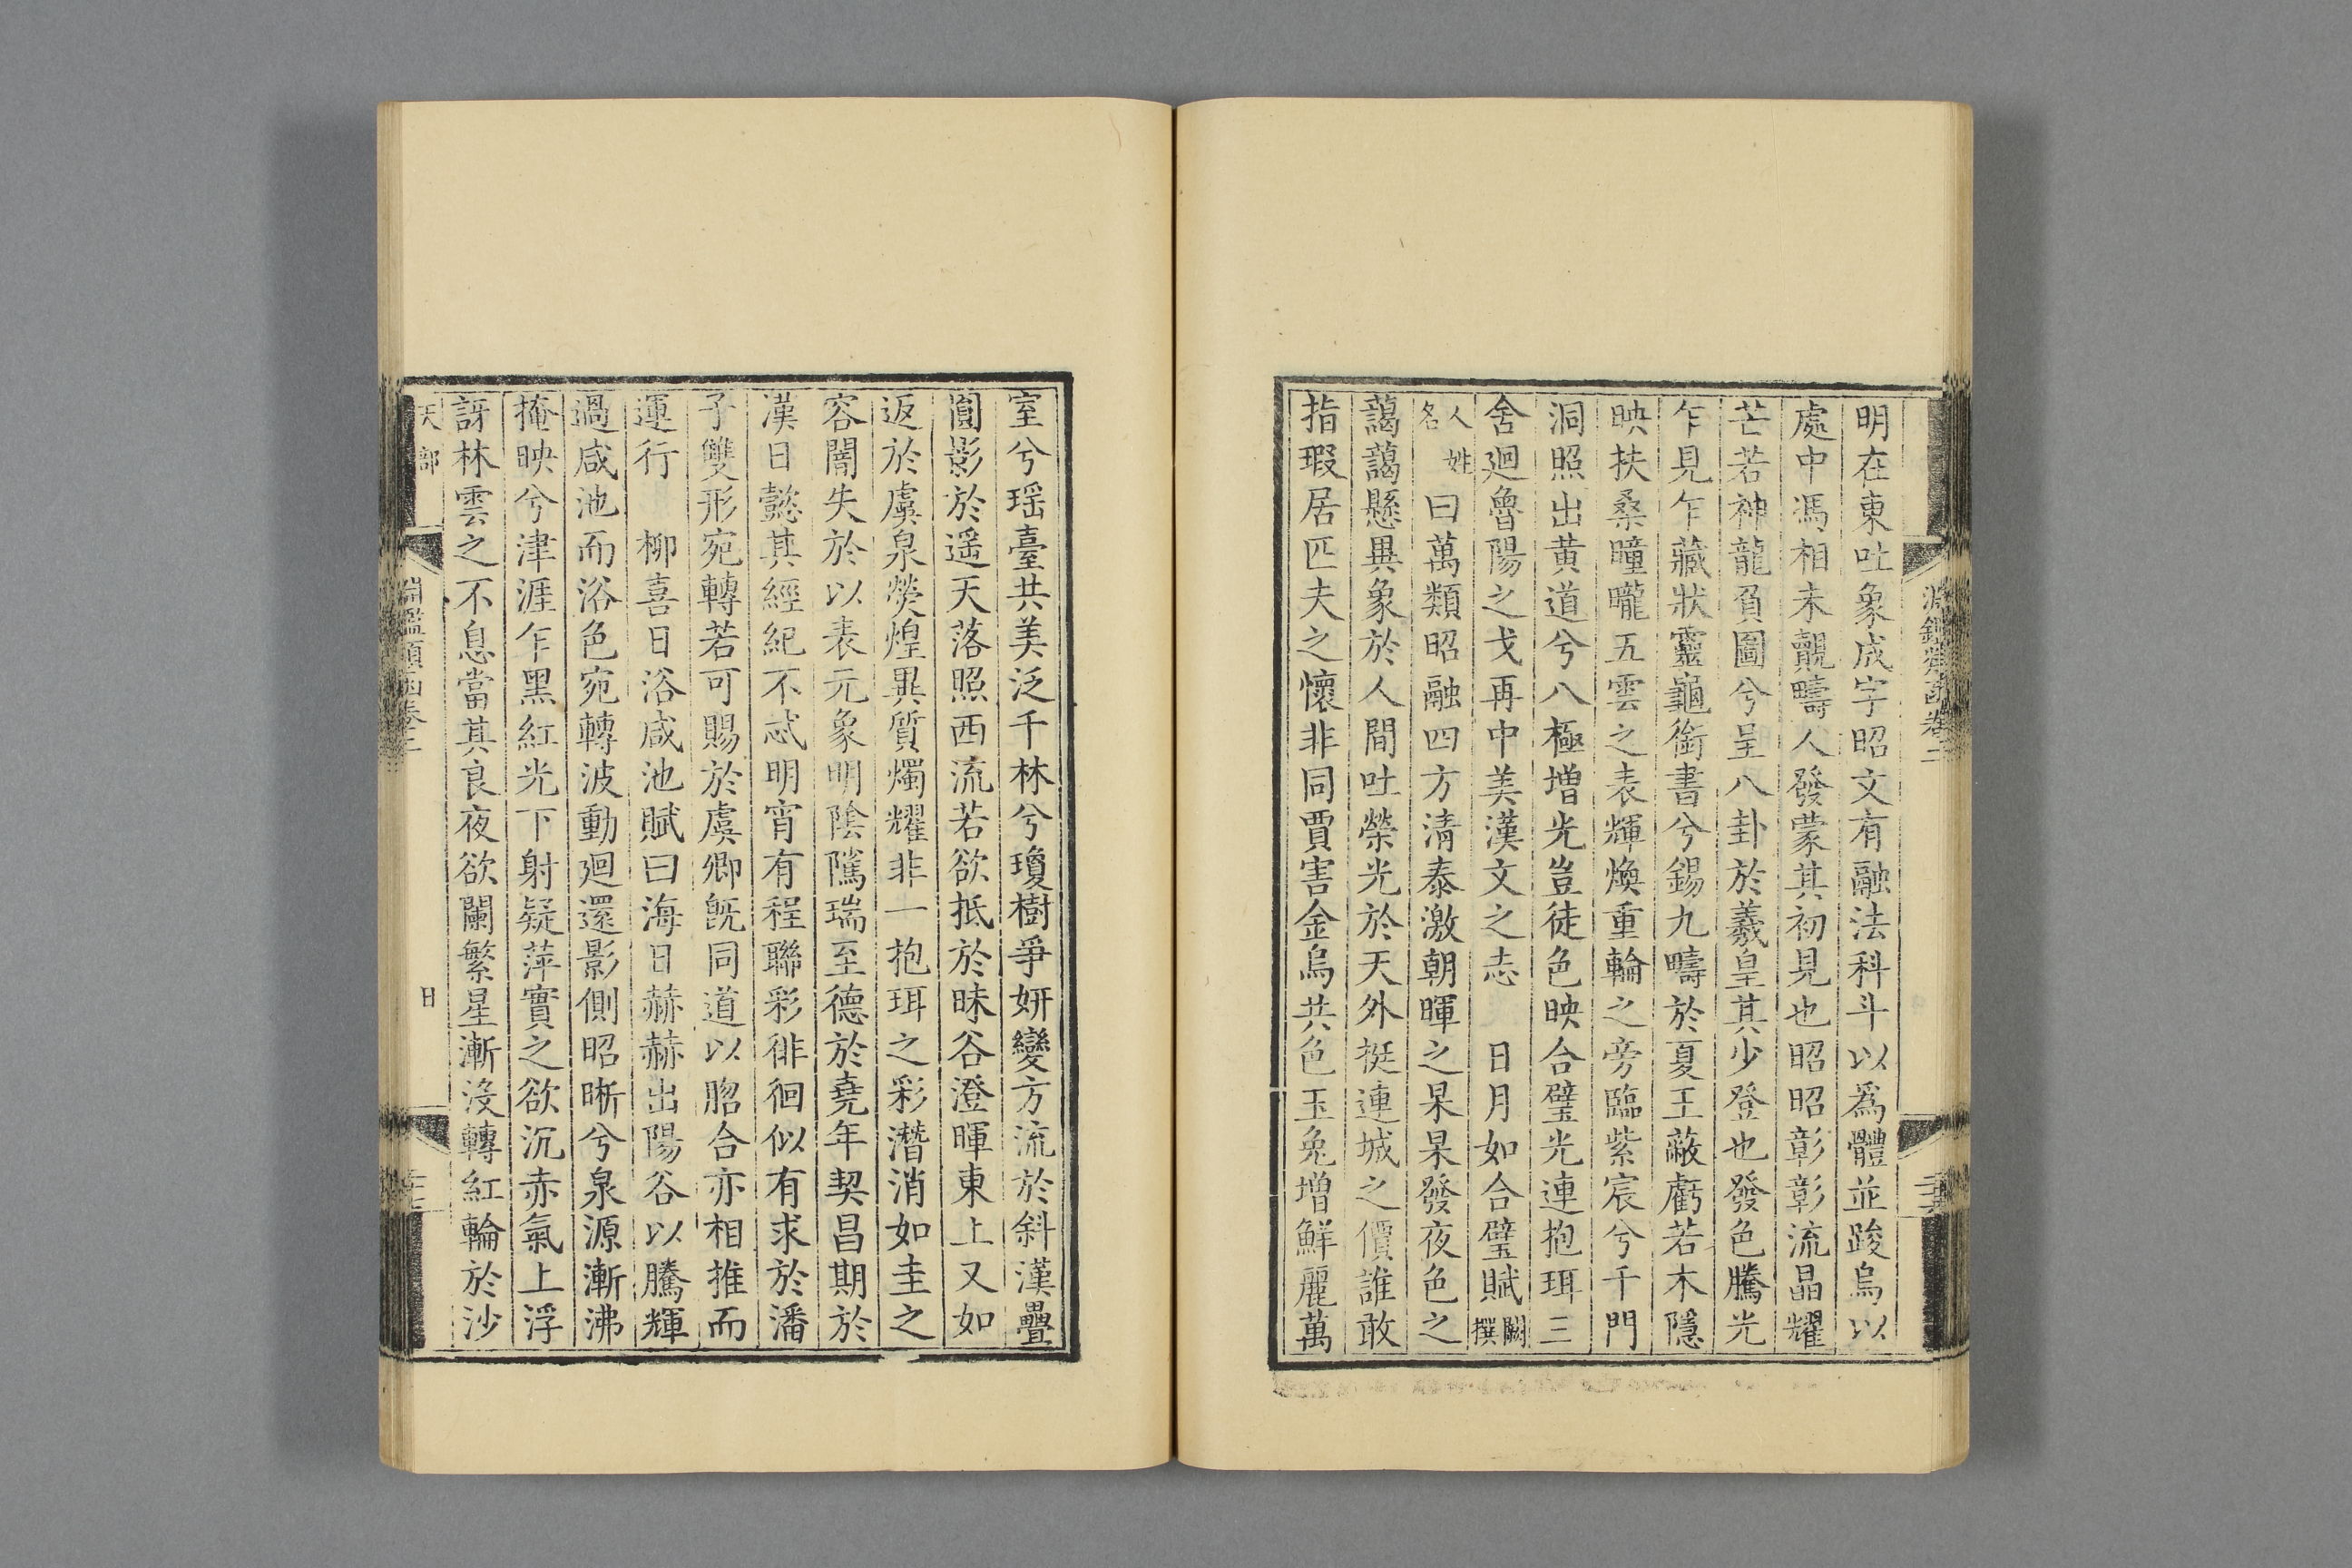 明在東吐象成字昭文有融法科斗以爲體並踆烏以
處中馮相未覩疇人發蒙其初見也昭昭彰彰流晶耀
芒若神龍負圖兮呈八卦於羲皇其少登也發色騰光
乍見乍藏狀靈龜銜書兮錫九疇於夏王蔽虧若木隱
映扶桑曈曨五雲之表輝煥重輪之旁臨紫宸兮千門
洞照出黄道兮八極增光豈徒色映合璧光連抱珥三
舍迴魯陽之戈再中美漢文之志 日月如合璧賦闕撰
人姓名曰萬類昭融四方清泰激朝暉之杲杲發夜色之
藹藹懸異象於人間吐榮光於天外挺連城之價誰敢
指瑕居匹夫之懷非同賈害金烏共色玉兔增鮮麗萬
淵鑑類函卷二
室兮瑶臺共美泛千林兮瓊樹爭妍變方流於斜漢疊
圓影於遥天落照西流若欲抵於昧谷澄暉東上又如
返於虞泉熒煌異質燭耀非一抱珥之彩潛消如圭之
容闇失於以表元象明陰隲瑞至德於堯年契昌期於
漢日懿其經紀不忒明宵有程聯彩徘徊似有求於潘
子雙形宛轉若可賜於虞卿旣同道以脗合亦相推而
運行 柳喜日浴咸池賦曰海日赫赫出陽谷以騰輝
過咸池而浴色宛轉波動廻還影側昭晰兮泉源漸沸
掩映兮津涯乍黑紅光下射疑萍實之欲沉赤氣上浮
訝林雲之不息當其良夜欲闌繁星漸没轉紅輪於沙
天部 淵鑑類函卷二 日